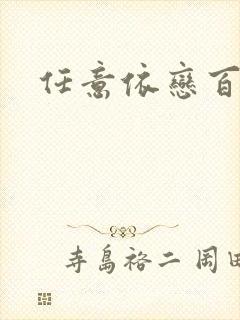 任意依戀百
寺島裕二 岡田